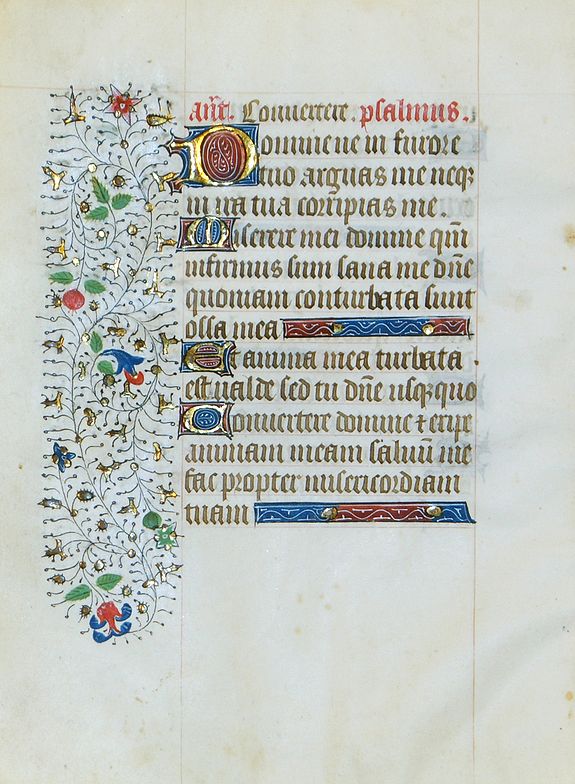 an̄t. Conuertere. psalmus.
Domine ne in furore
tuo arguas me neqꝫ
in ira tua corripias me.
Miserere mei domine qm̄
infirmus sum sana me dn̄e
quoniam conturbata sunt
ossa mea
Et anima mea turbata
est ualde sed tu dn̄e usqꝫquo
Conuertere domine ⁊ eripe
animam meam saluū me
fac propter misericordiam
tuam